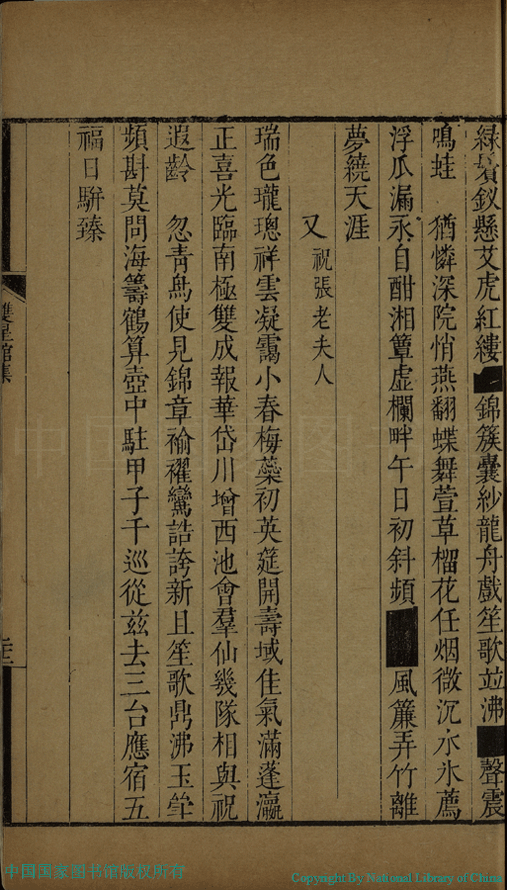 綠鬢釵懸艾虎紅縷■錦簇囊紗龍舟戲笙歌竝沸■聲震
鳴蛙　猶憐深院悄燕翻蝶舞萱草榴花任烟微沉水氷薦
浮瓜漏永自酣湘簟虛欄畔午日初斜頻■風簾弄竹離
夢繞天涯
又祝張老夫人
瑞色瓏璁祥雲凝靄小春梅蘂初英筵開壽域佳氣滿蓬瀛
正喜光臨南極雙成報華岱川增西池會羣仙幾隊相與祝
遐齡　忽青鳥使見錦章褕襬鸞誥誇新且笙歌鼎沸玉斝
頻斟莫問海籌鶴算壺中駐甲子千巡從兹去三台應宿五
福日駢臻
雙星館集
三
中国国家图书馆版权所有
Copyright By National Library of China